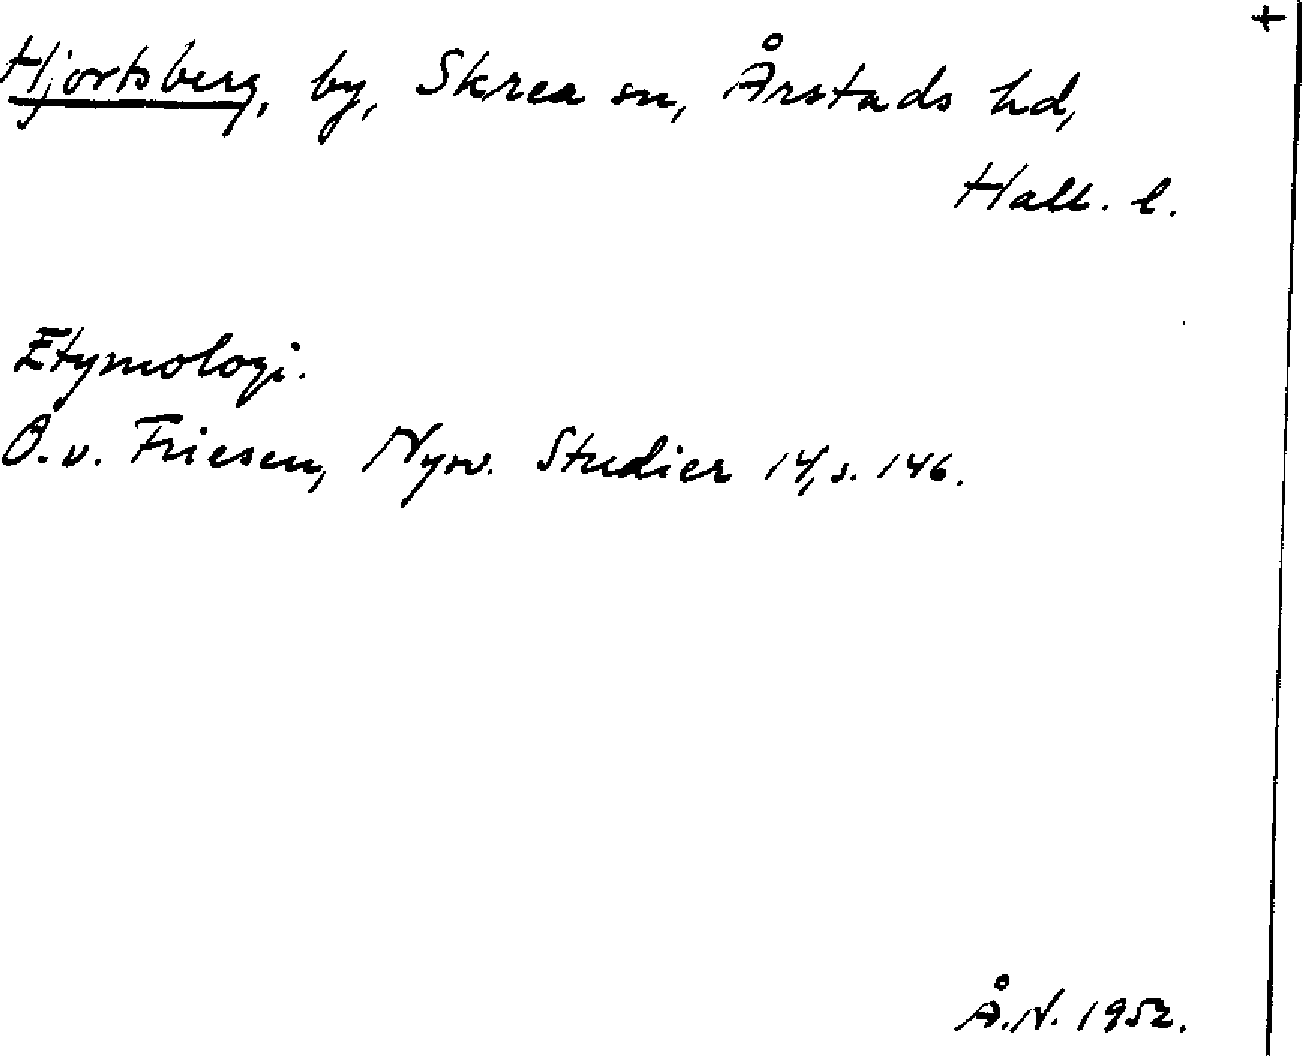 +
Hjortsberg, by, Skrea sn, Årstads hd,
Hall. l.
Etymologi.
O. v. Friesen, Nysv. Studier 14, s. 146.
Å.N. 1952.